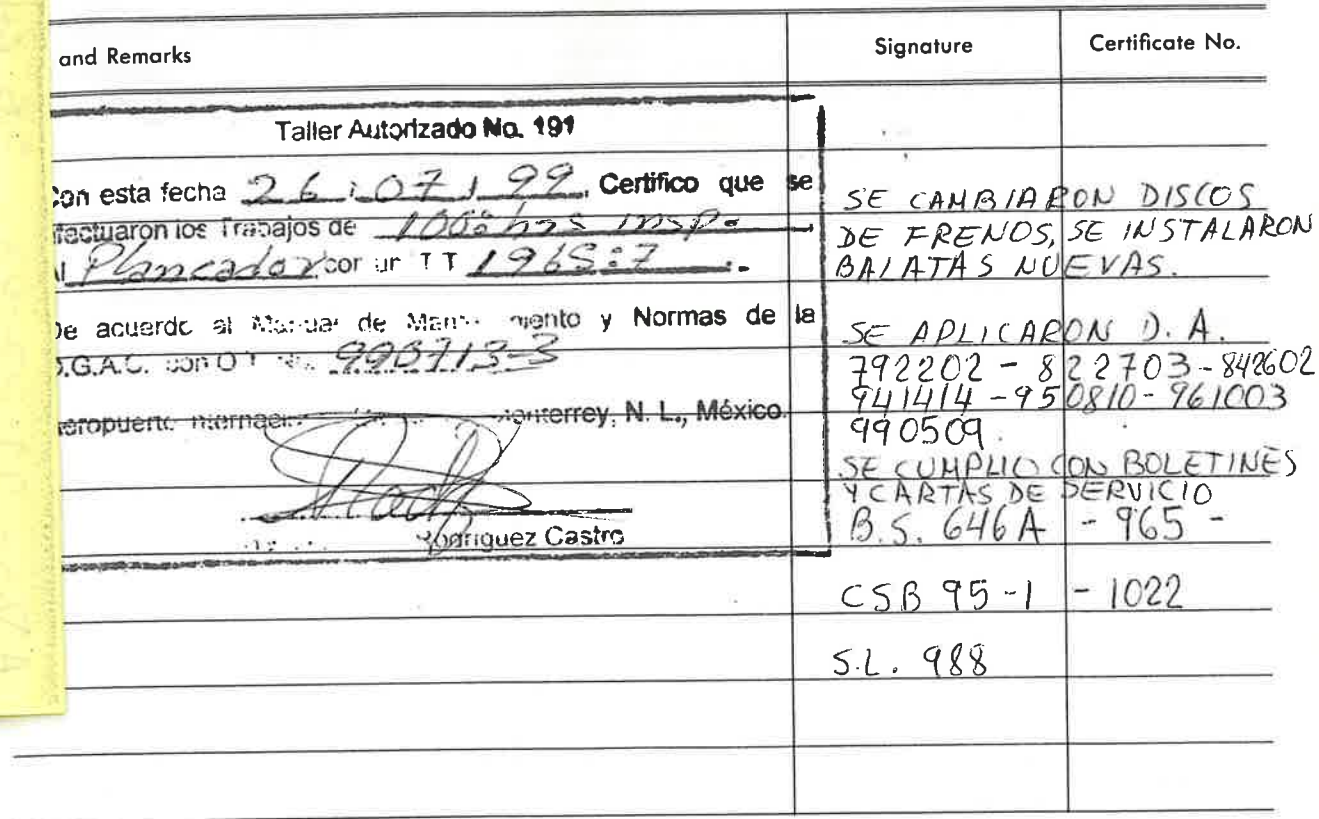 and Remarks
Signature
Certificate No.
Taller Autorizado No. 191
Con esta fecha 26 07 99 Certifico que se
efectuaron los Trabajos de 100 hrs insp.
Al Planeador con un TT 1965:7
De acuerdo al Manual de Mantenimiento y Normas de la
D.G.A.C. con O.T. No. 990713-3
Aeropuerto Monterrey, N. L., México.
Rodriguez Castro
SE CAMBIARON DISCOS
DE FRENOS, SE INSTALARON
BALATAS NUEVAS.
SE APLICARON D. A.
792202 - 822703 - 842602
941414 - 950810 - 961003
990509
SE CUMPLIO CON BOLETINES
Y CARTAS DE SERVICIO
B.S. 646A - 965 -
CSB 95-1 - 1022
S.L. 988